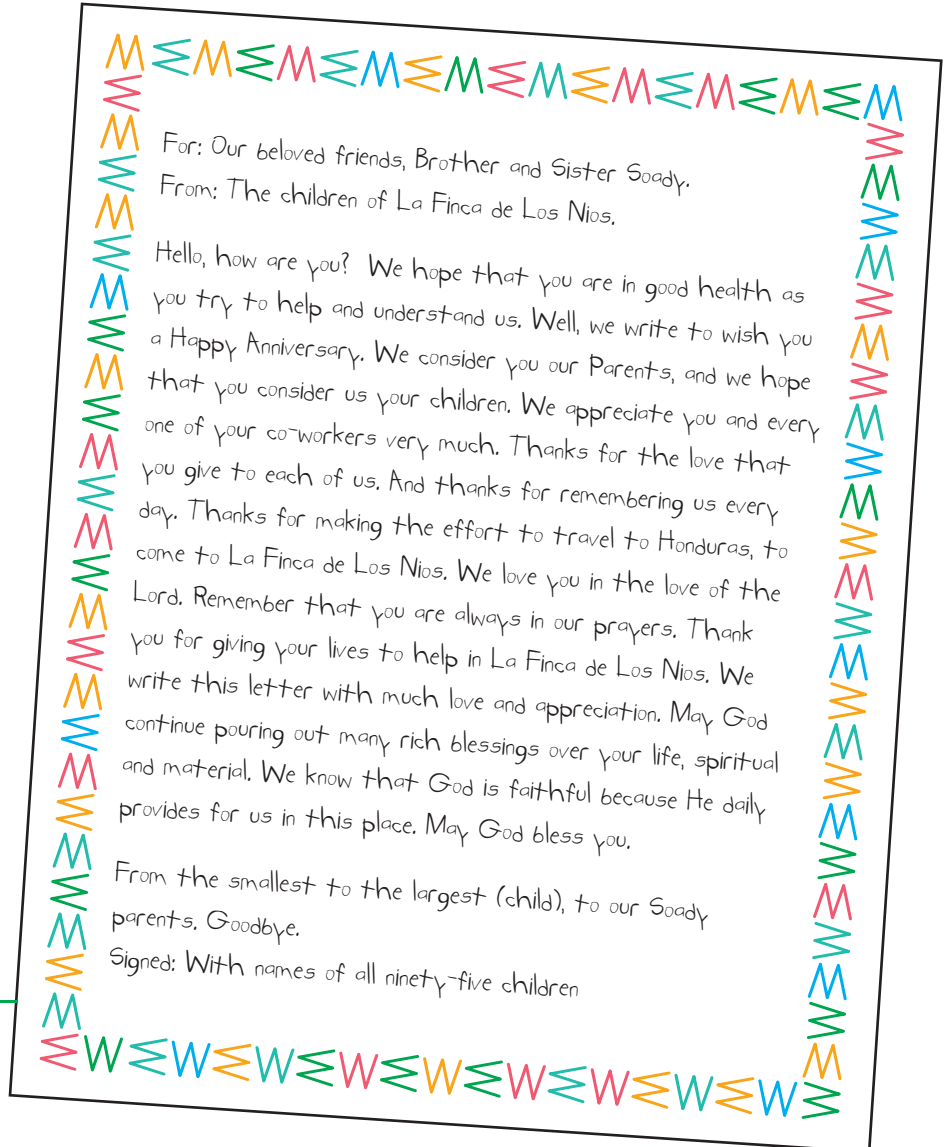 For: Our beloved friends, Brother and Sister Soady.
From: The children of La Finca de Los Nios.
Hello, how are you? We hope that you are in good health as
you try to help and understand us. Well, we write to wish you
a Happy Anniversary. We consider you our Parents, and we hope
that you consider us your children. We appreciate you and every
one of your co-workers very much. Thanks for the love that
you give to each of us. And thanks for remembering us every
day. Thanks for making the effort to travel to Honduras, to
come to La Finca de Los Nios. We love you in the love of the
Lord. Remember that you are always in our prayers. Thank
you for giving your lives to help in La Finca de Los Nios. We
write this letter with much love and appreciation. May God
continue pouring out many rich blessings over your life, spiritual
and material. We know that God is faithful because He daily
provides for us in this place. May God bless you.
From the smallest to the largest (child), to our Soady
parents. Goodbye.
Signed: With names of all ninety-five children